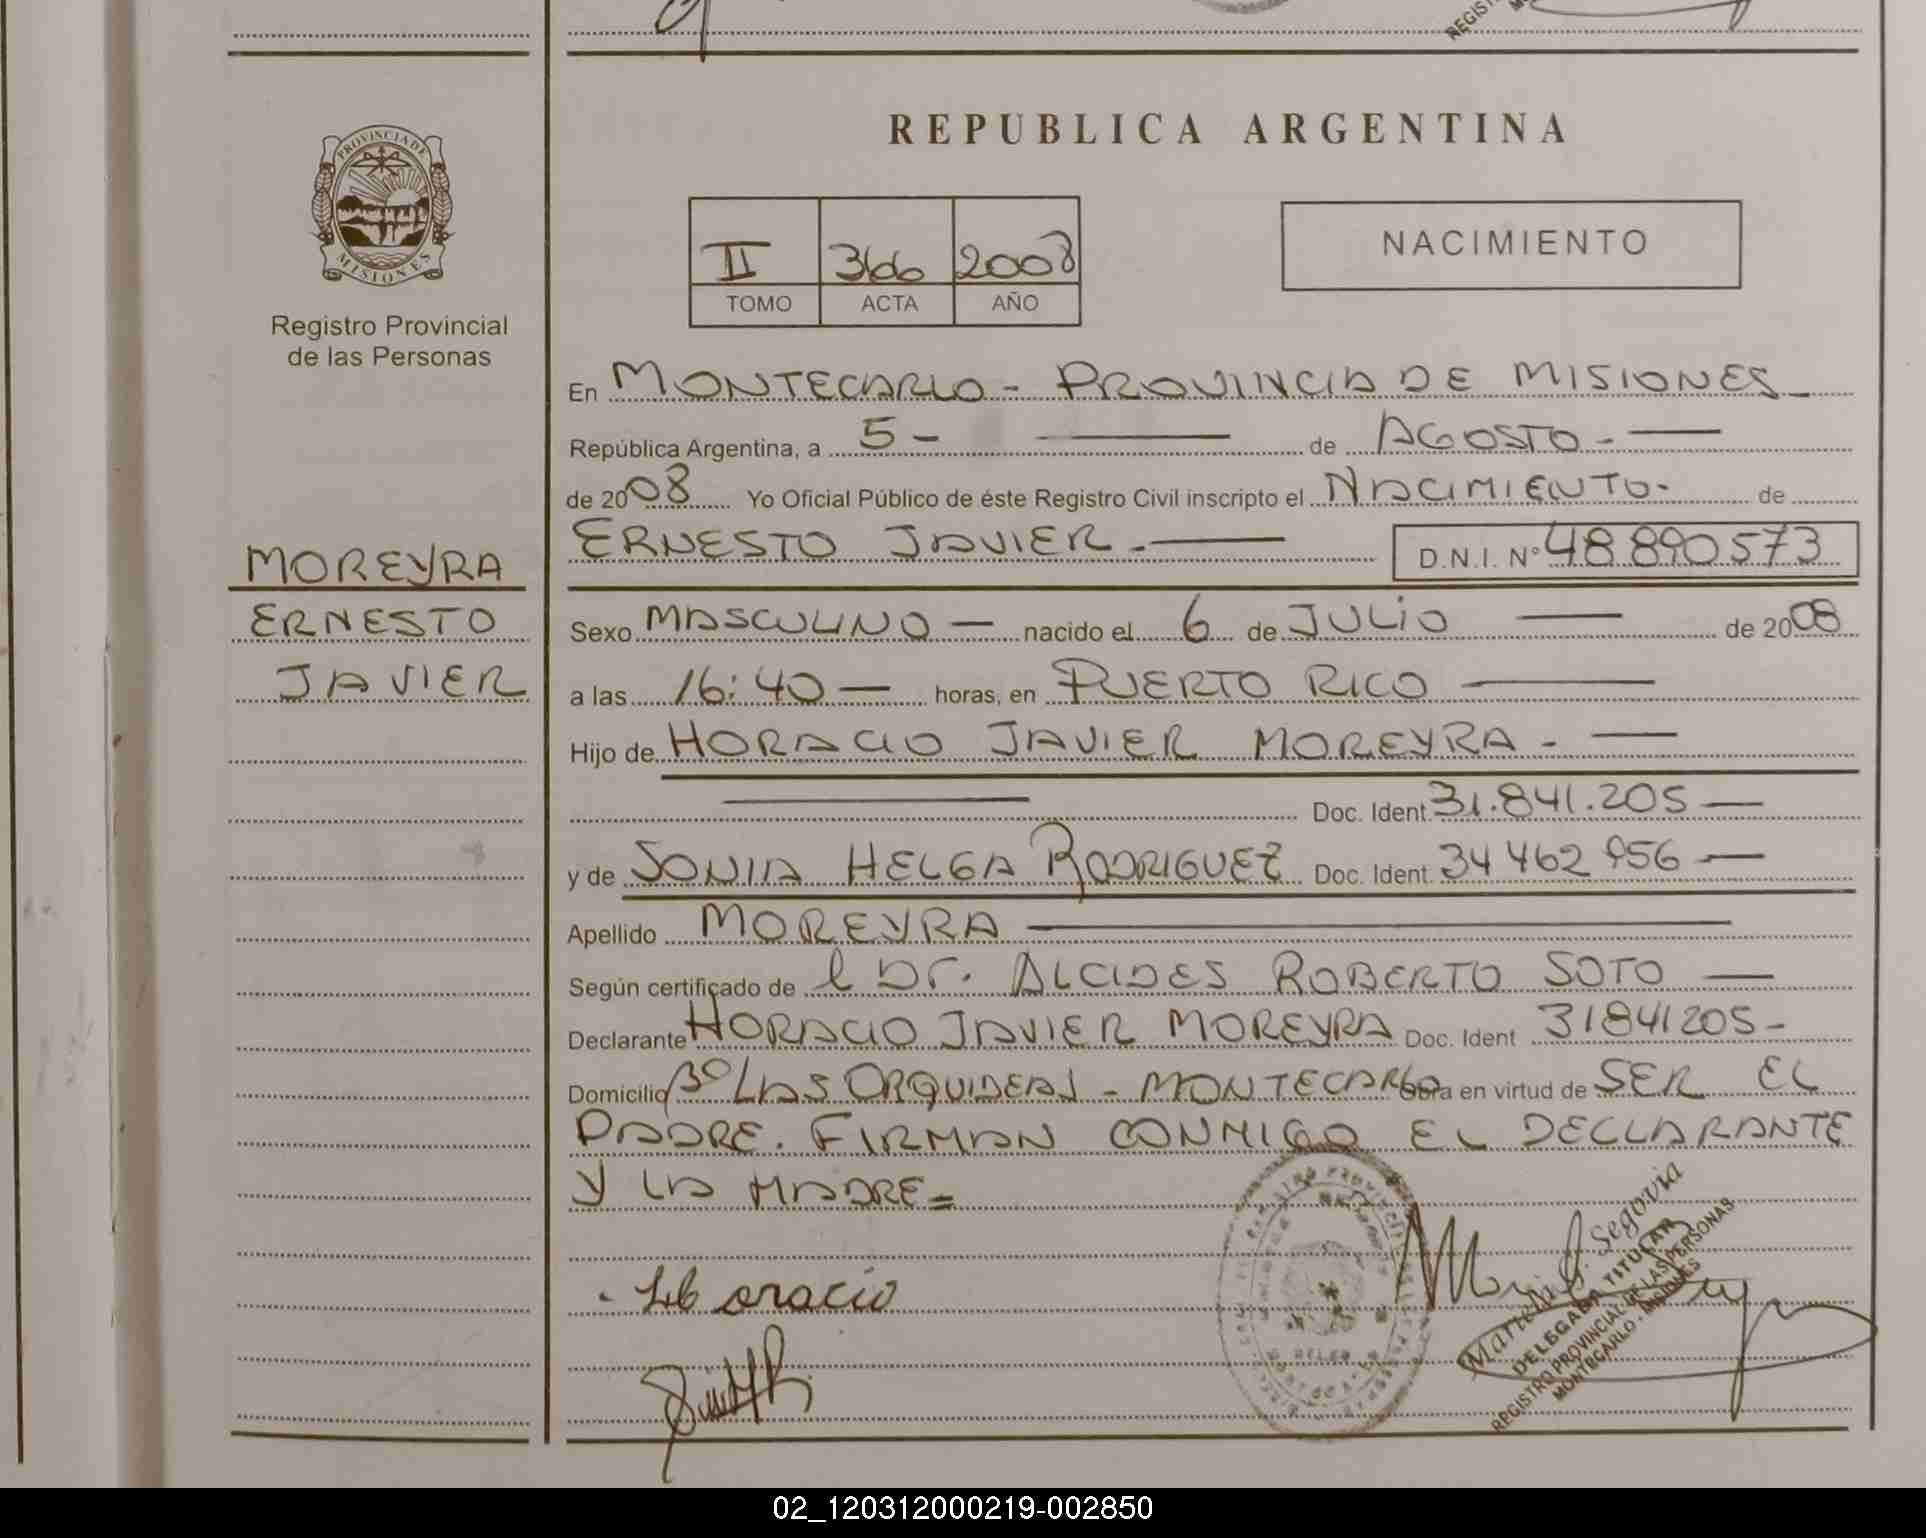 REPUBLICA ARGENTINA
PROVINCIA DE
MISIONES
Registro Provincial
de las Personas
II 366 2008
TOMO ACTA AÑO
NACIMIENTO
En MONTECARLO - PROVINCIA DE MISIONES
República Argentina, a 5 - de AGOSTO -
de 2008 Yo Oficial Público de éste Registro Civil inscripto el NACIMIENTO. de
ERNESTO JAVIER. D.N.I. Nº 48.890.573
MOREYRA
ERNESTO
JAVIER
Sexo MASCULINO nacido el 6 de JULIO de 2008
a las 16:40 horas, en PUERTO RICO
Hijo de HORACIO JAVIER MOREYRA -
Doc. Ident. 31.841.205
y de SONIA HELGA RODRIGUEZ Doc. Ident. 34 462 956
Apellido MOREYRA
Según certificado de l Dr. ALCIDES ROBERTO SOTO
Declarante HORACIO JAVIER MOREYRA Doc. Ident 31841205-
Domicilio Bº LAS ORQUIDEAS - MONTECARLO Obra en virtud de SER EL
PADRE. FIRMAN CONMIGO EL DECLARANTE
Y LA MADRE=
Segovia
DELEGADA TITULAR
REGISTRO PROVINCIAL DE LAS PERSONAS
MONTECARLO - MISIONES
02_120312000219-002850